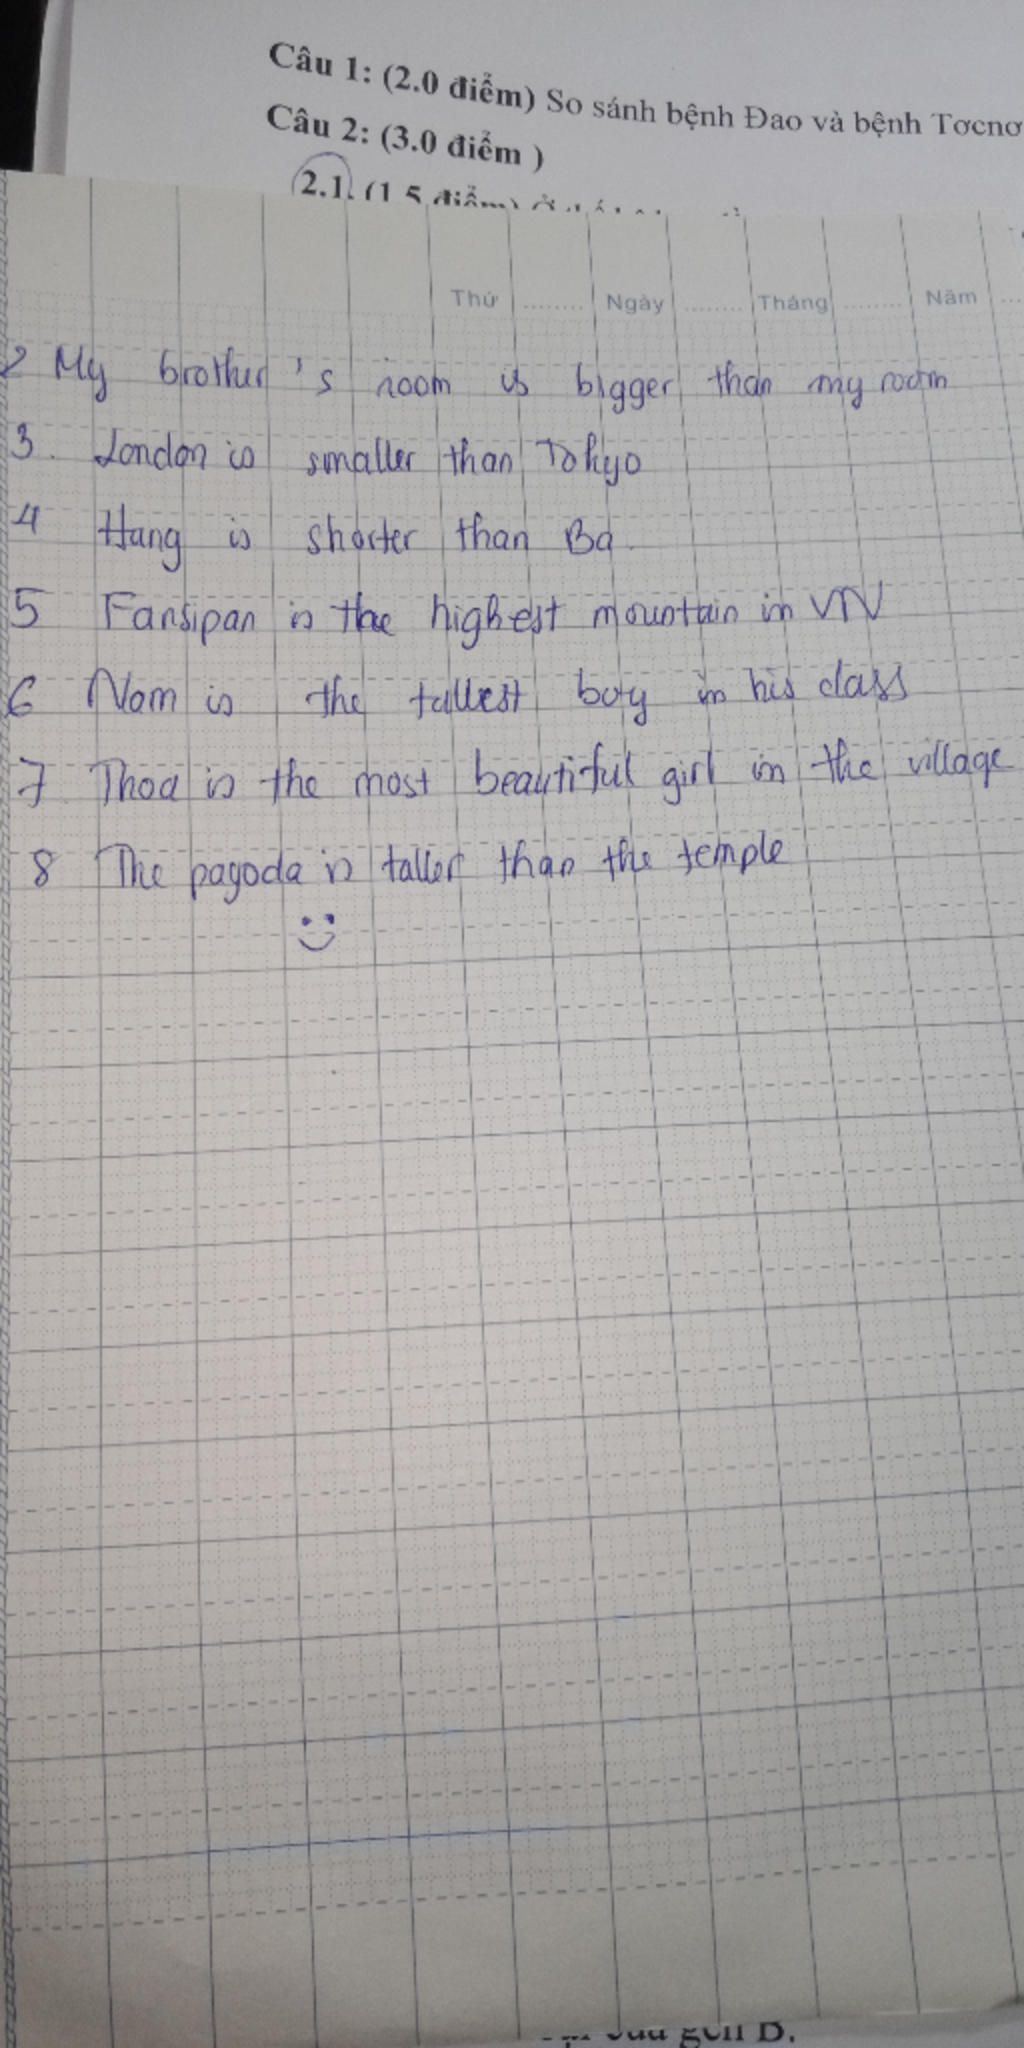 Câu 1: (2.0 điểm) So sánh bệnh Đao và bệnh Tơcnơ
Câu 2: (3.0 điểm )
2.1. (1.5 điểm) Ở
Thứ ......... Ngày ......... Tháng ......... Năm ...
2 My brother's room is bigger than my room
3. London is smaller than Tokyo
4 Hang is shorter than Ba.
5 Fansipan is the highest mountain in VN
6 Nam is the tallest boy in his class
7 Thoa is the most beautiful girl in the village
8 The pagoda is taller than the temple
gen B.